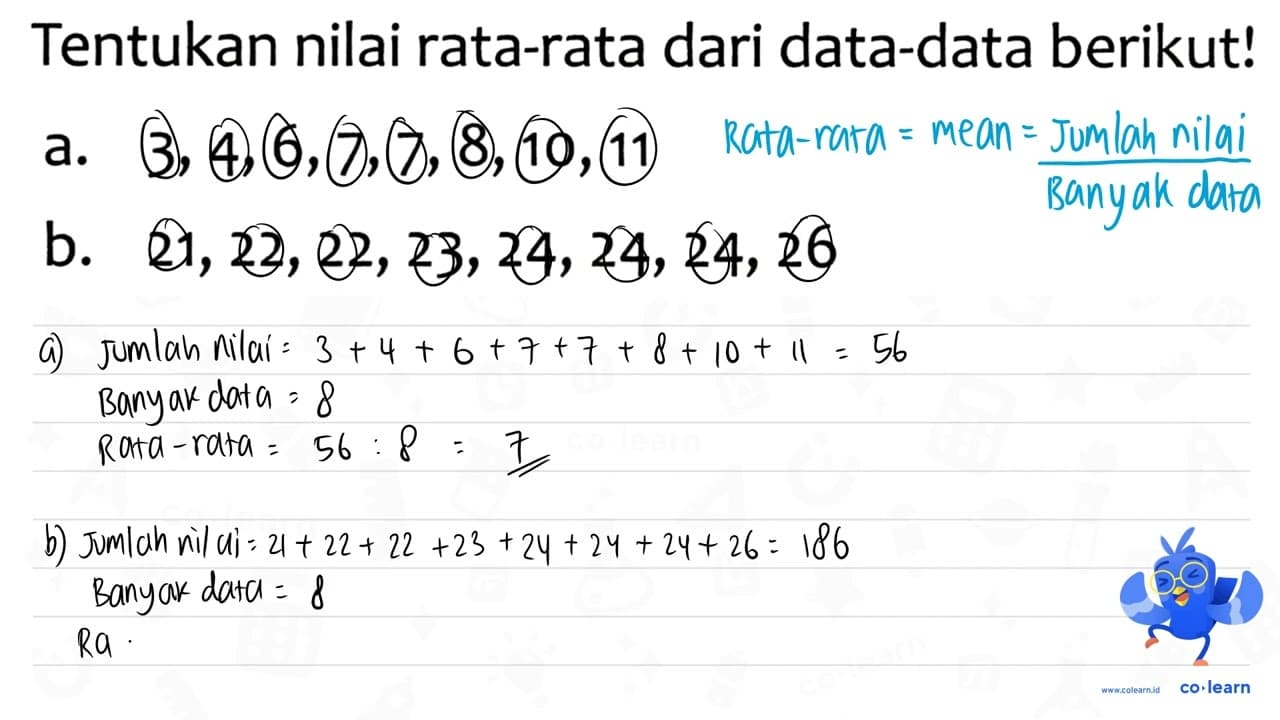 Tentukan nilai rata-rata dari data-data berikut!
a. 3, 4, 6, 7, 7, 8, 10, 11
Rata-rata = mean = Jumlah nilai
Banyak data
b. 21, 22, 22, 23, 24, 24, 24, 26
a) Jumlah nilai = 3 + 4 + 6 + 7 + 7 + 8 + 10 + 11 = 56
Banyak data = 8
Rata-rata = 56 : 8 = 7
co learn
b) Jumlah nilai = 21 + 22 + 22 + 23 + 24 + 24 + 24 + 26 = 186
Banyak data = 8
Ra
www.colearn.id co·learn